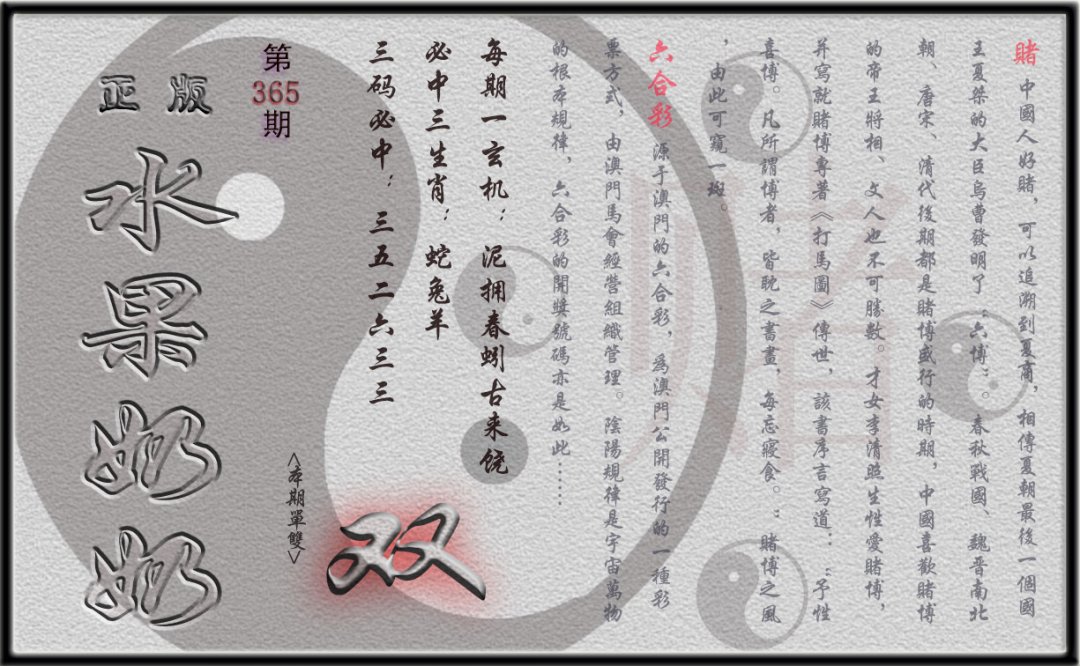 賭 中國人好賭，可以追溯到夏商，相傳夏朝最後一個國
王夏桀的大臣烏曹發明了“六博”。春秋戰國、魏晋南北
朝、唐宋、清代後期都是賭博盛行的時期，中國喜歡賭博
的帝王將相、文人也不可勝數。才女李清照生性愛賭博，
并寫就賭博專著《打馬圖》傳世，該書序言寫道：“予性
喜博。凡所謂博者，皆耽之書晝，每忘寢食。”賭博之風
，由此可窺一斑。
六合彩 源于澳門的六合彩，爲澳門公開發行的一種彩
票方式，由澳門馬會經營組織管理。陰陽規律是宇宙萬物
的根本規律，六合彩的開獎號碼亦是如此……
赌
每期一玄机：泥拥春蚓古来饶
必中三生肖：蛇兔羊
三码必中：三五二六三三
双
<本期單雙>
第365期
正版
水果奶奶